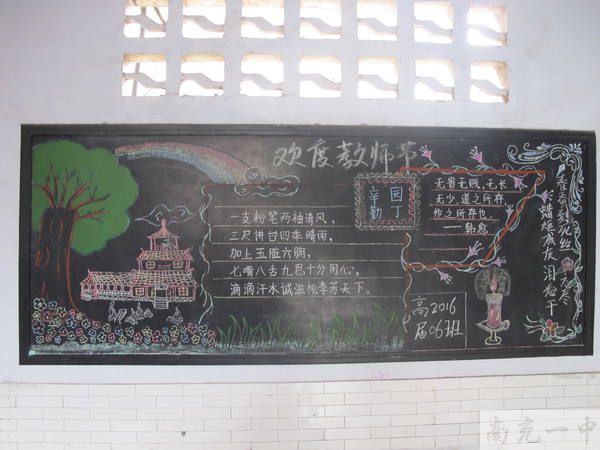 欢度教师节
一支粉笔两袖清风，
三尺讲台四季晴雨，
加上五脏六腑，
七嘴八舌九思十分用心，
滴滴汗水诚滋桃李芳天下。
辛勤
园丁
无贵无贱，无长
无少，道之所存，
师之所存也。
——韩愈
春蚕到死丝方尽
蜡炬成灰泪始干
高2016
届06班
南充一中